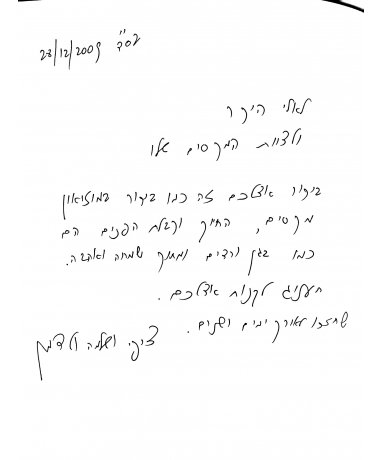 בס"ד
23/12/2009
לאלי היקר
ולצוות המקסים שלו
ביקור אצלכם זה כמו ביקור במוזיאון
מקסים, החיוך וקבלת הפנים הם
כמו בגן ורדים ומתוך שמחה ואהבה.
תענוג לקנות אצלכם.
שתזכו לאורך ימים ושנים.
ציפי ושלמה ולדמן